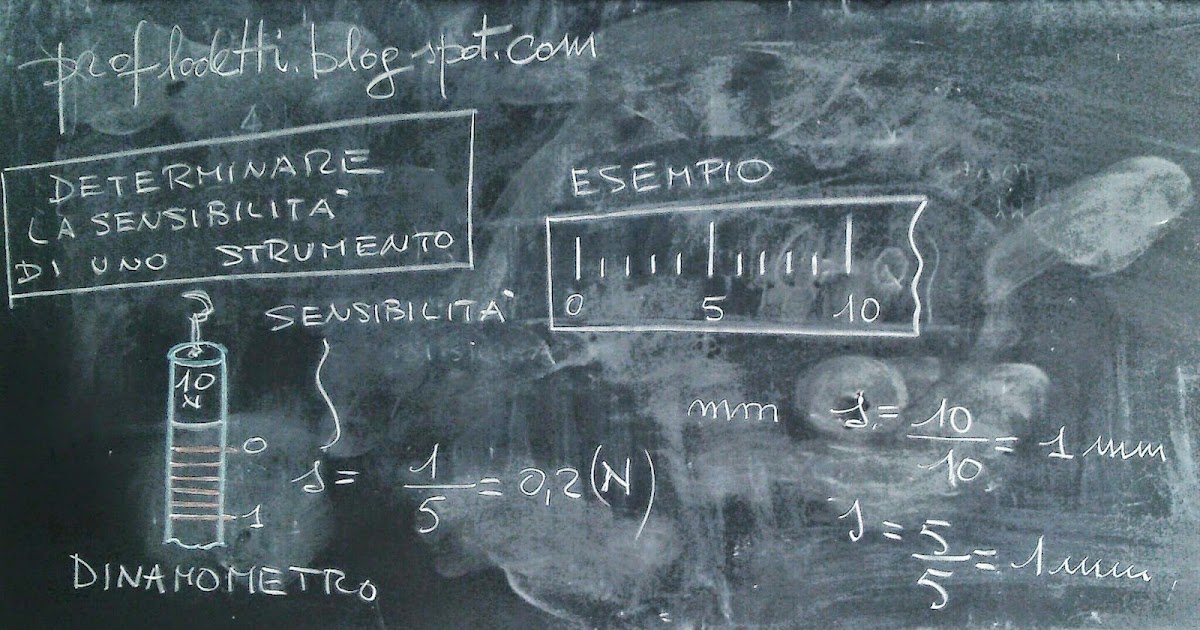 proflodetti.blogspot.com
DETERMINARE
LA SENSIBILITÀ
DI UNO STRUMENTO
ESEMPIO
0 5 10
SENSIBILITÀ
10
N
0
1
s = 1/5 = 0,2 (N)
DINAMOMETRO
mm s = 10/10 = 1 mm
s = 5/5 = 1 mm